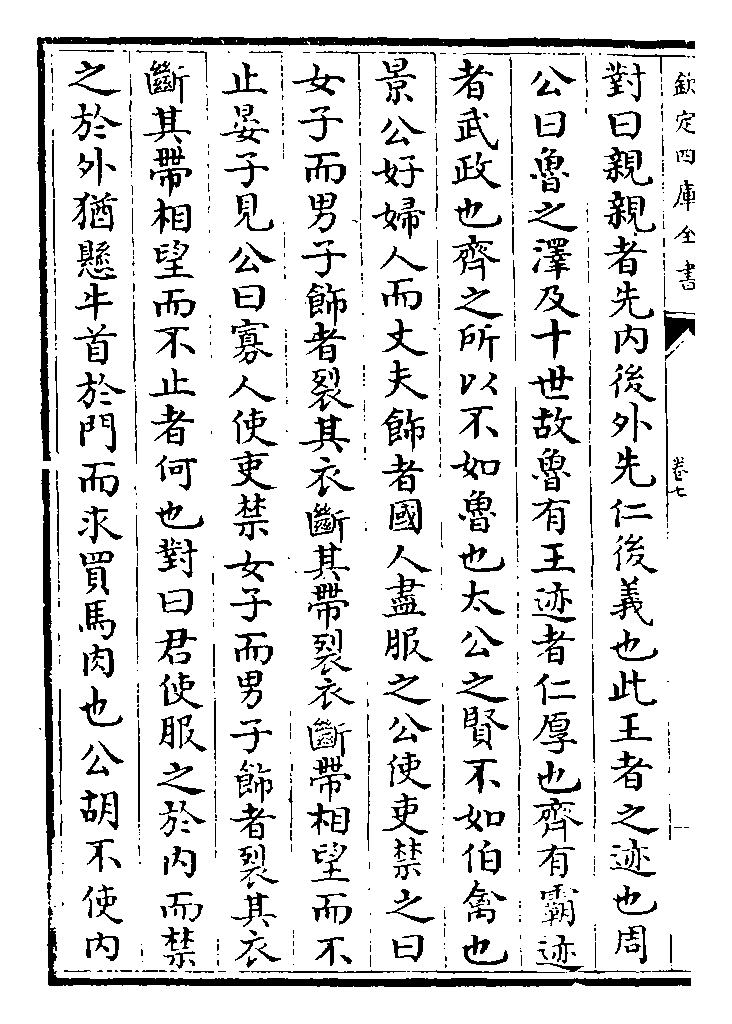 欽定四庫全書
卷七
對曰親親者先内後外先仁後義也此王者之迹也周
公曰魯之澤及十世故魯有王迹者仁厚也齊有霸迹
者武政也齊之所以不如魯也太公之賢不如伯禽也
景公好婦人而丈夫飾者國人盡服之公使吏禁之曰
女子而男子飾者裂其衣斷其帶裂衣斷帶相望而不
止晏子見公曰寡人使吏禁女子而男子飾者裂其衣
斷其帶相望而不止者何也對曰君使服之於内而禁
之於外猶懸牛首於門而求買馬肉也公胡不使内